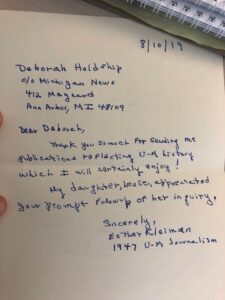 8/10/19
Deborah Holdship
c/o Michigan News
412 Maynard
Ann Arbor, MI 48109
Dear Deborah,
Thank you so much for sending me
publications reflecting U-M history
which I will certainly enjoy!
My daughter, Leslie, appreciated
your prompt followup of her inquiry.
Sincerely,
Esther Kleiman
1947 U-M Journalism